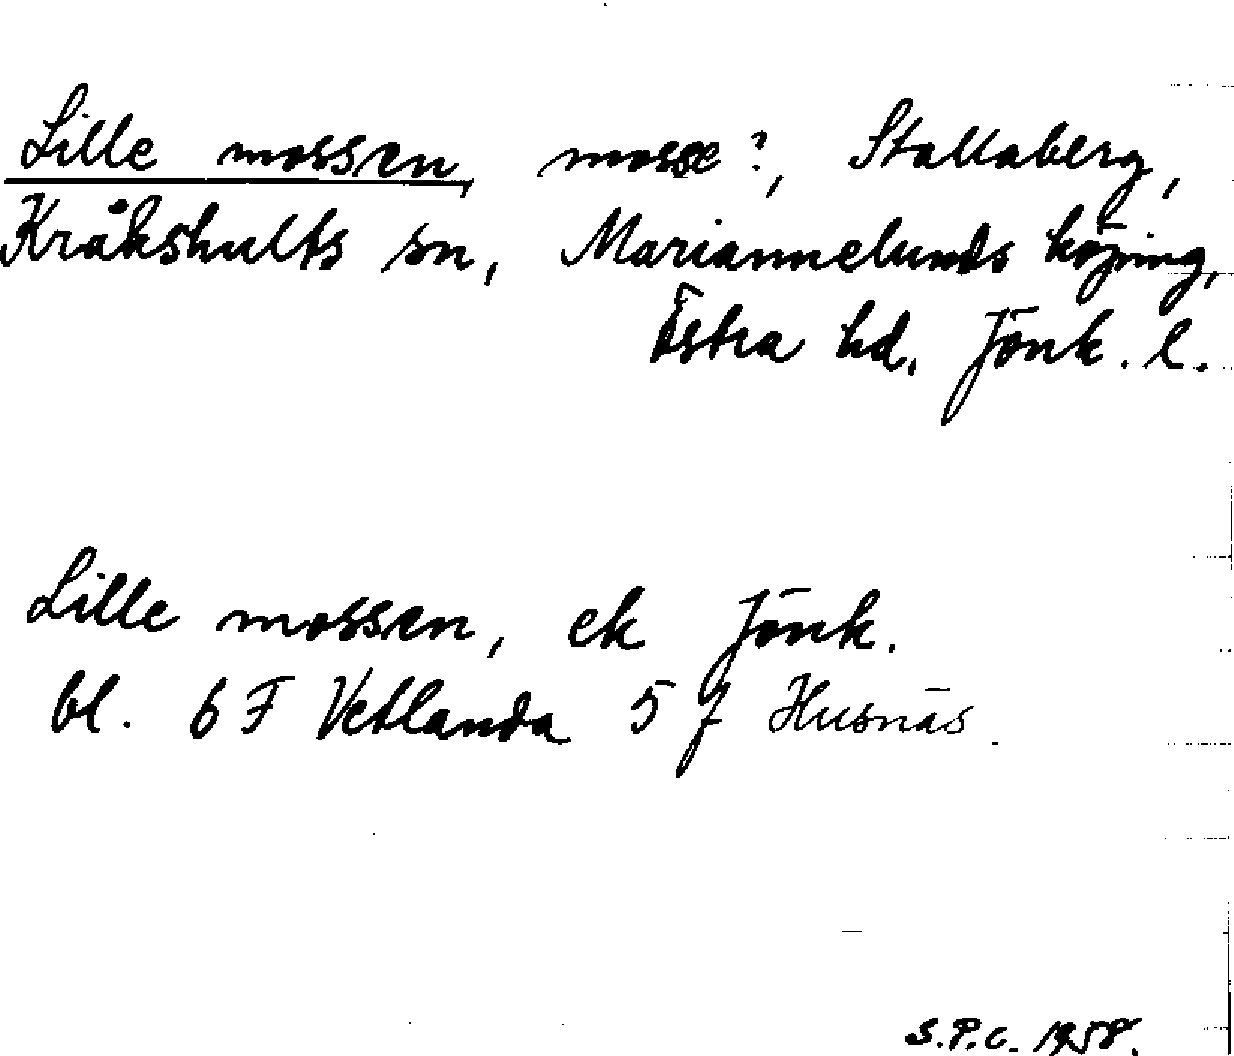 Lille mossen, mosse?, Stallaberg,
Kråkshults sn, Mariannelunds köping,
Östra hd. Jönk. l.
Lille mossen, ek Jönk.
bl. 6 F Vetlanda 5 j Husnäs.
S.P.C. 1958.